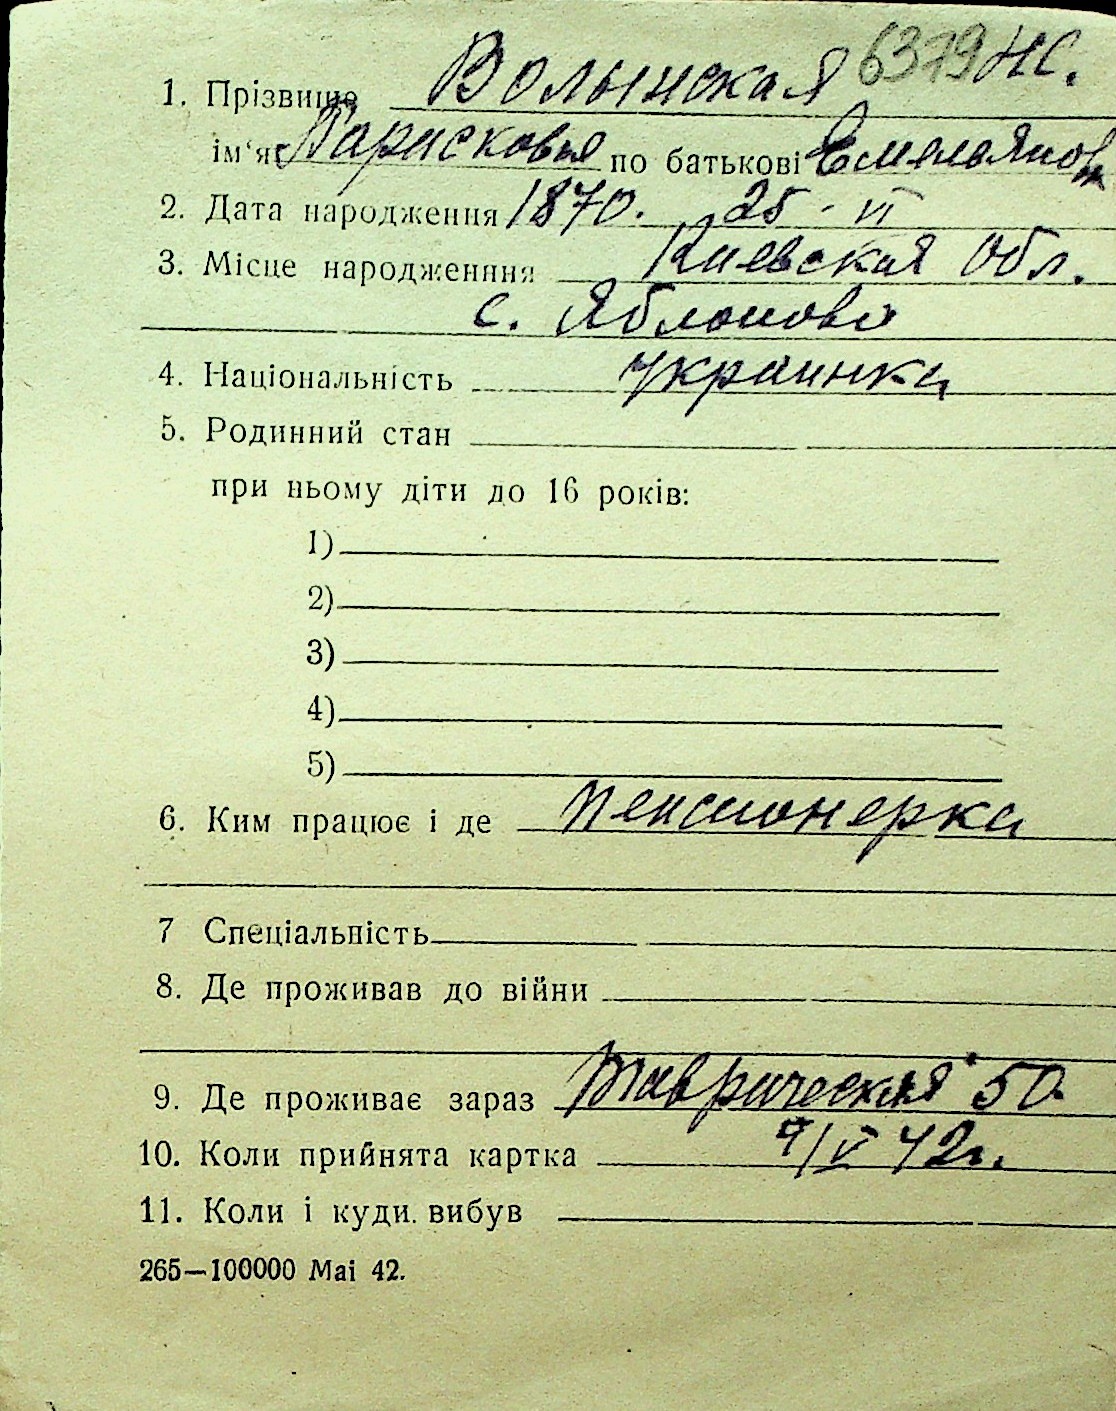 6379 НС.
1. Прізвище Волынская
ім'я Парасковья по батькові Емельянов
2. Дата народження 1870. 25 - VI
3. Місце народженння Киевская Обл.
с. Яблоново
4. Національність украинка
5. Родинний стан
при ньому діти до 16 років:
1)
2)
3)
4)
5)
6. Ким працює і де пенсионерка
7 Спеціальність
8. Де проживав до війни
9. Де проживає зараз Таврическая 50
10. Коли прийнята картка 9/V 42г.
11. Коли і куди. вибув
265—100000 Mai 42.